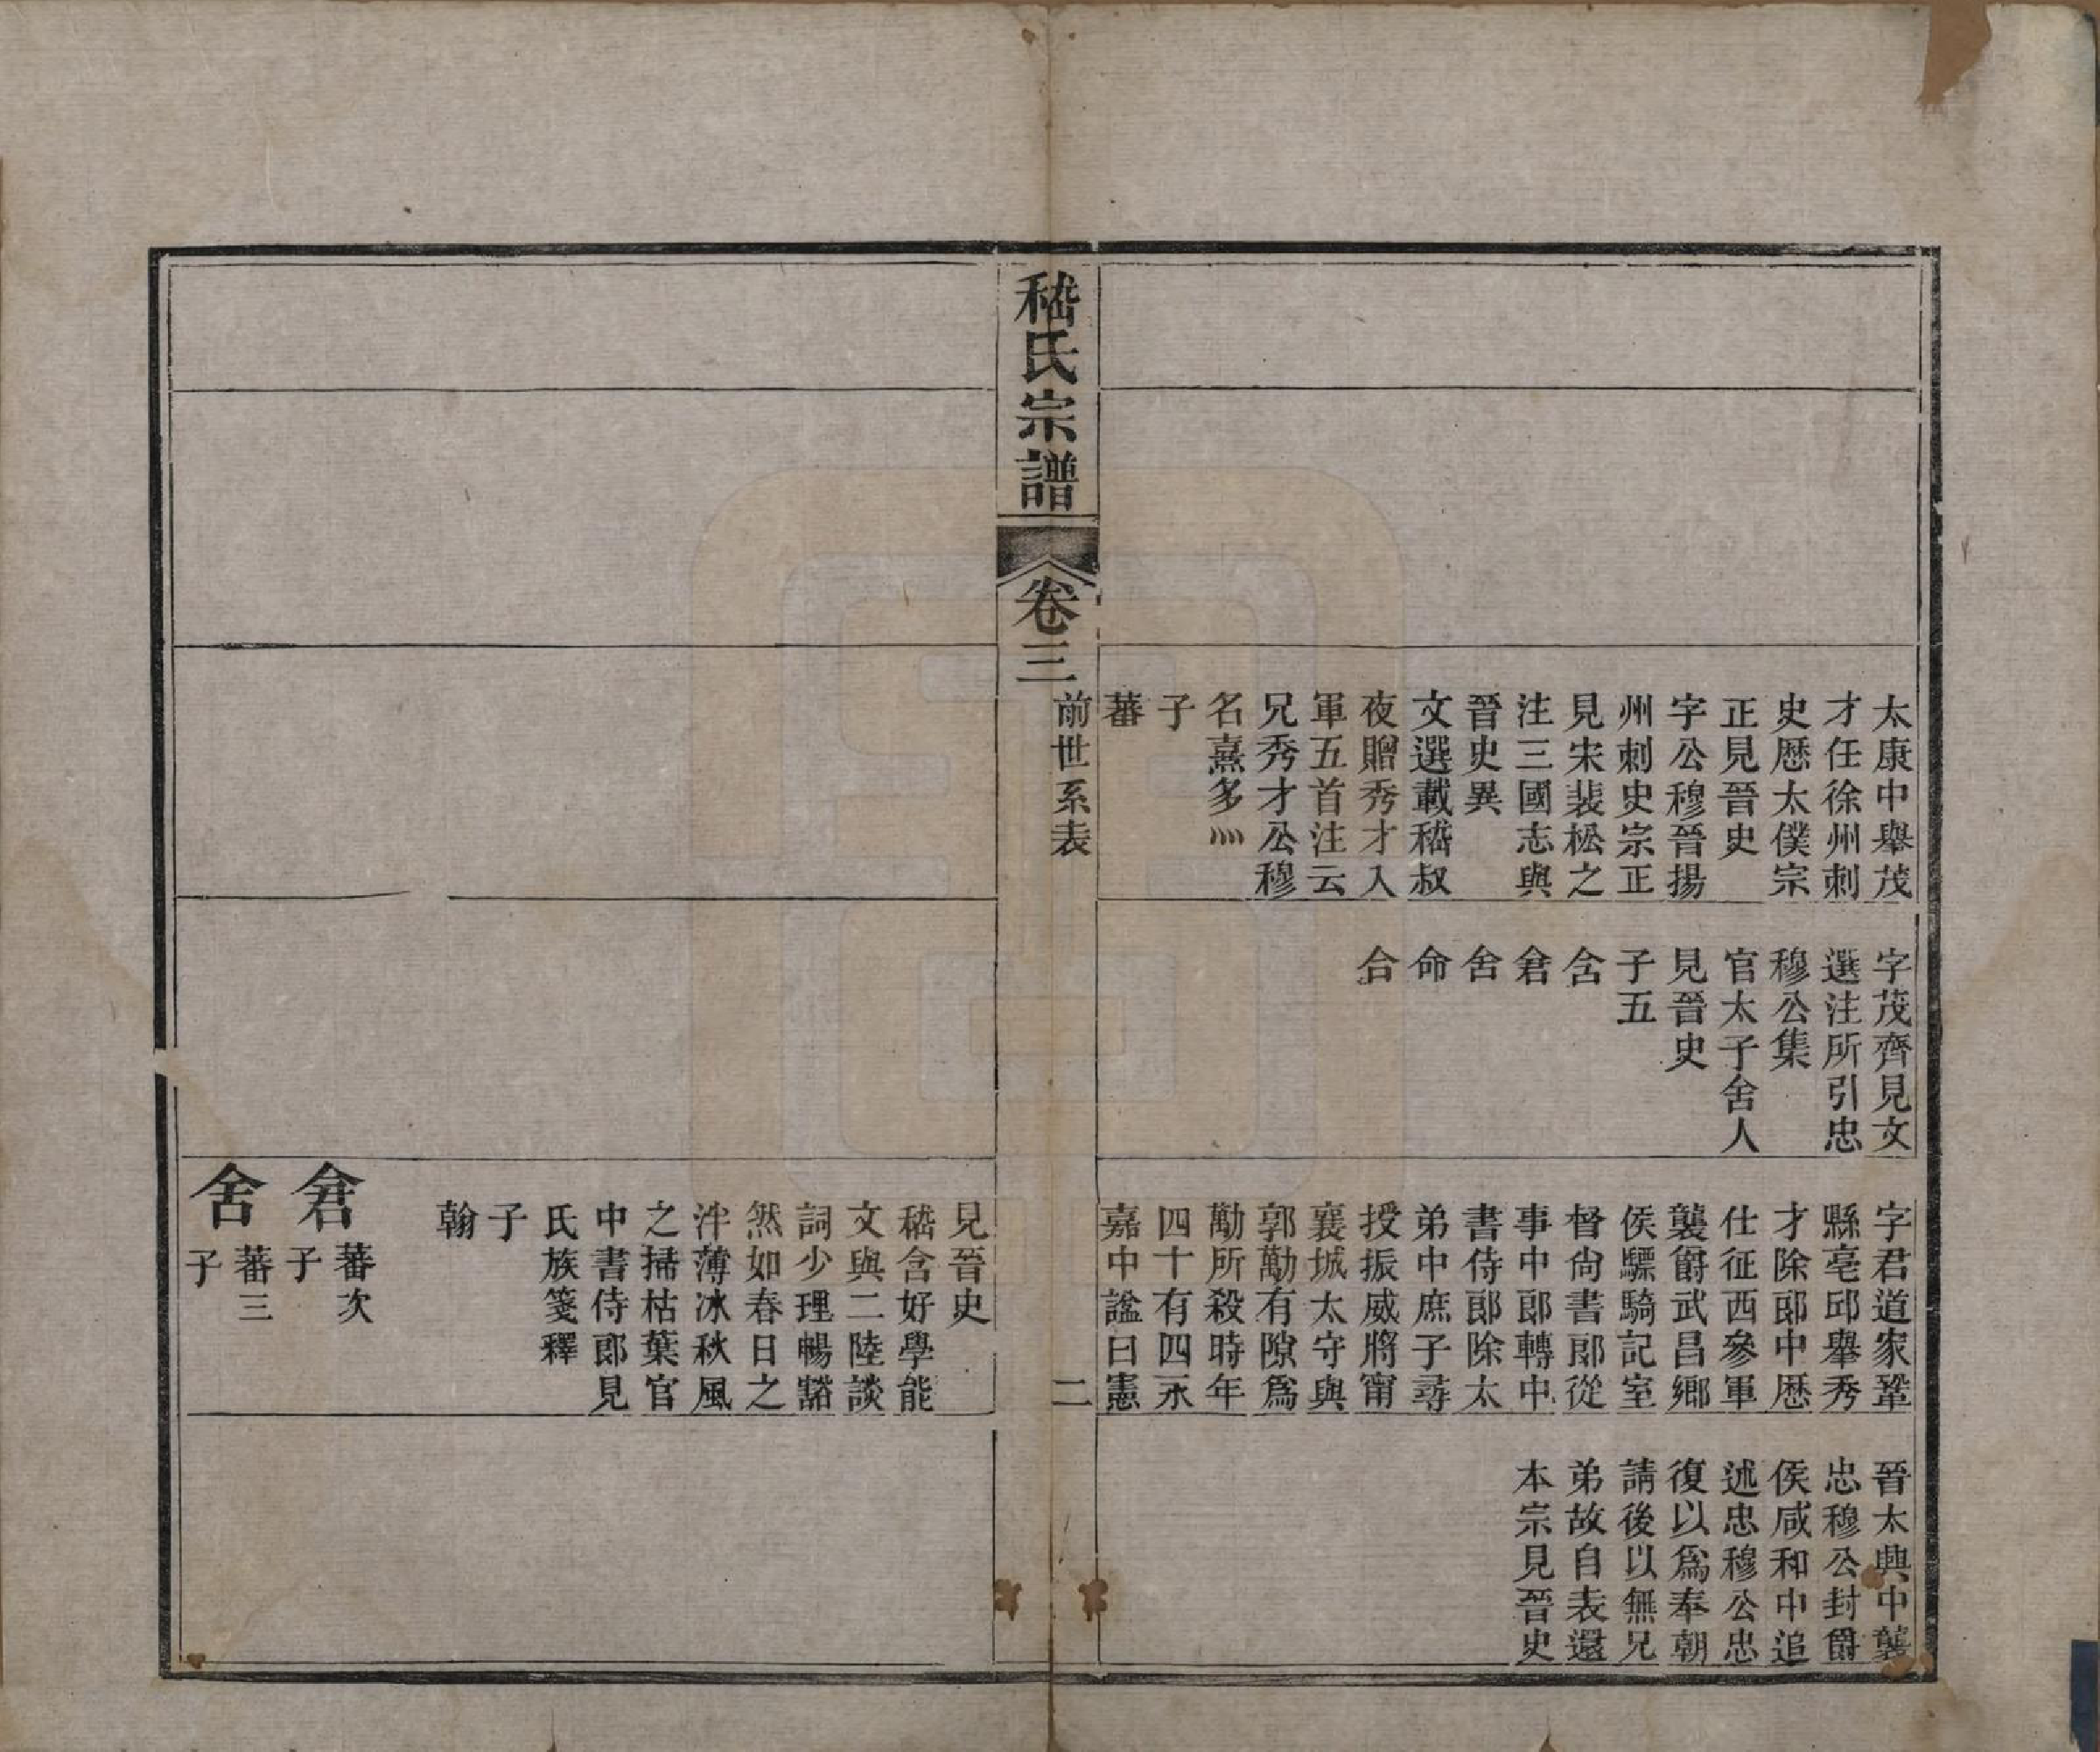 太康中舉茂
才任徐州刺
史歷太僕宗
正見晉史
字公穆晉揚
州刺史宗正
見宋裴松之
注三國志與
晉史異
文選載嵇叔
夜贈秀才入
軍五首注云
兄秀才公穆
名熹多灬
子
蕃
字茂齊見文
選注所引忠
穆公集
官太子舍人
見晉史
子五
含
舍
命
合
字君道家鞏
縣亳邱舉秀
才除郎中歷
仕征西參軍
襲爵武昌鄉
侯驃騎記室
督尙書郎從
事中郎轉中
書侍郎除太
弟中庶子尋
授振威將甯
襄城太守與
郭勱有隙爲
勱所殺時年
四十有四永
嘉中諡曰憲
晉太興中襲
忠穆公封爵
侯咸和中追
述忠穆公忠
復以爲奉朝
請後以無兄
弟故自表還
本宗見晉史
嵇氏宗譜
卷三
前世系表
二
見晉史
嵇含好學能
文與二陸談
詞少理暢豁
然如春日之
泮薄冰秋風
之掃枯葉官
中書侍郎見
氏族箋釋
子
翰
蕃次
子
舍
蕃三
子